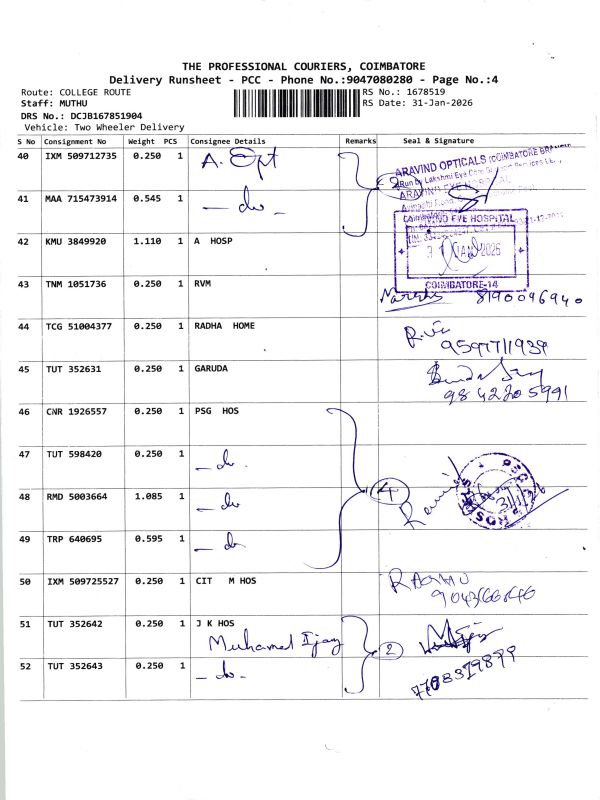 THE PROFESSIONAL COURIERS, COIMBATORE
Delivery Runsheet - PCC - Phone No.:9047080280 - Page No.:4
Route: COLLEGE ROUTE RS No.: 1678519
Staff: MUTHU RS Date: 31-Jan-2026
DRS No.: DCJB167851904
Vehicle: Two Wheeler Delivery
S No Consignment No Weight PCS Consignee Details Remarks Seal & Signature
40 IXM 509712735 0.250 1 A. Opt
ARAVIND OPTICALS (COIMBATORE BRANCH)
Run by Lakshmi Eye Care
ARAVIND EYE HOSPITAL
41 MAA 715473914 0.545 1 - do -
42 KMU 3849920 1.110 1 A HOSP
ARAVIND EYE HOSPITAL
31 JAN 2026
COIMBATORE-14
43 TNM 1051736 0.250 1 RVM Naresh 8190096940
44 TCG 51004377 0.250 1 RADHA HOME
9597711939
45 TUT 352631 0.250 1 GARUDA
9842205991
46 CNR 1926557 0.250 1 PSG HOS
47 TUT 598420 0.250 1 - do.
48 RMD 5003664 1.085 1 - do 4
49 TRP 640695 0.595 1 - do
50 IXM 509725527 0.250 1 CIT M HOS
51 TUT 352642 0.250 1 J K HOS
Muhamed Ijaz 2
52 TUT 352643 0.250 1 - do -
7708379879